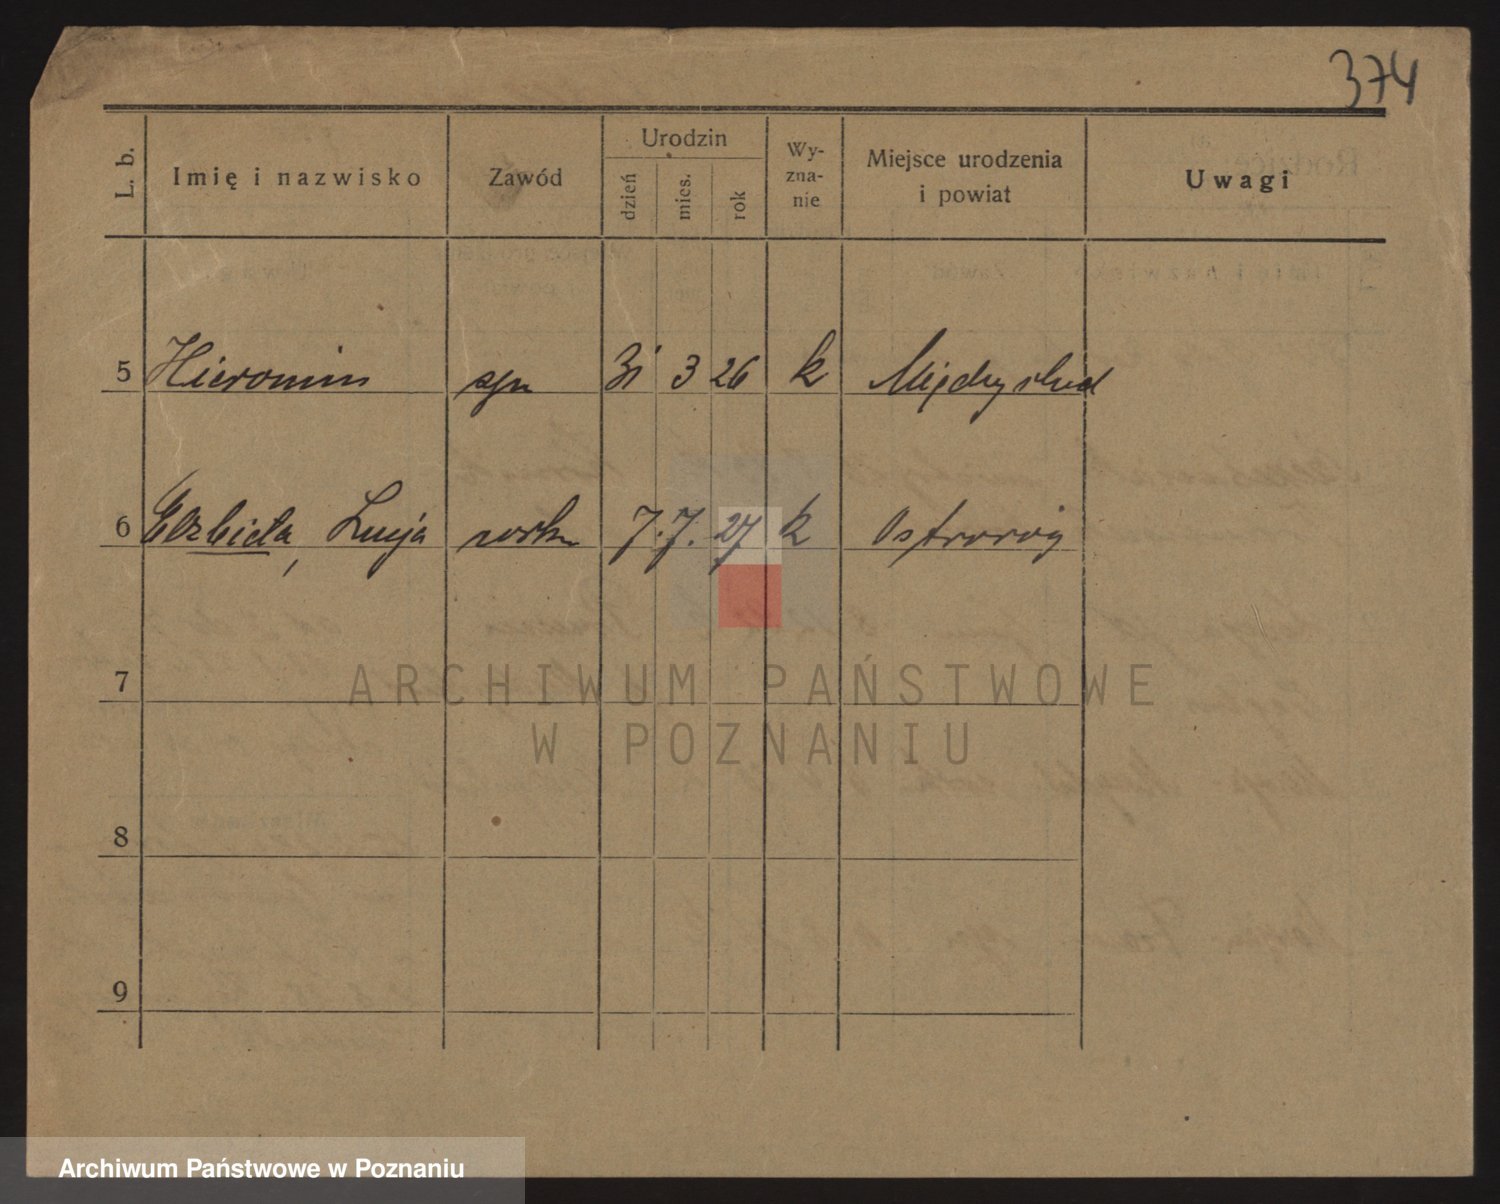 374
L. b.
Imię i nazwisko
Zawód
Urodzin
dzień
mies.
rok
Wy-
zna-
nie
Miejsce urodzenia
i powiat
Uwagi
5 Hieronim syn 31 3 26 k Międzychód
6 Elżbieta, Łucja córka 7. 7. 27 k Ostroróg
7
8
9
ARCHIWUM PAŃSTWOWE
W POZNANIU
Archiwum Państwowe w Poznaniu